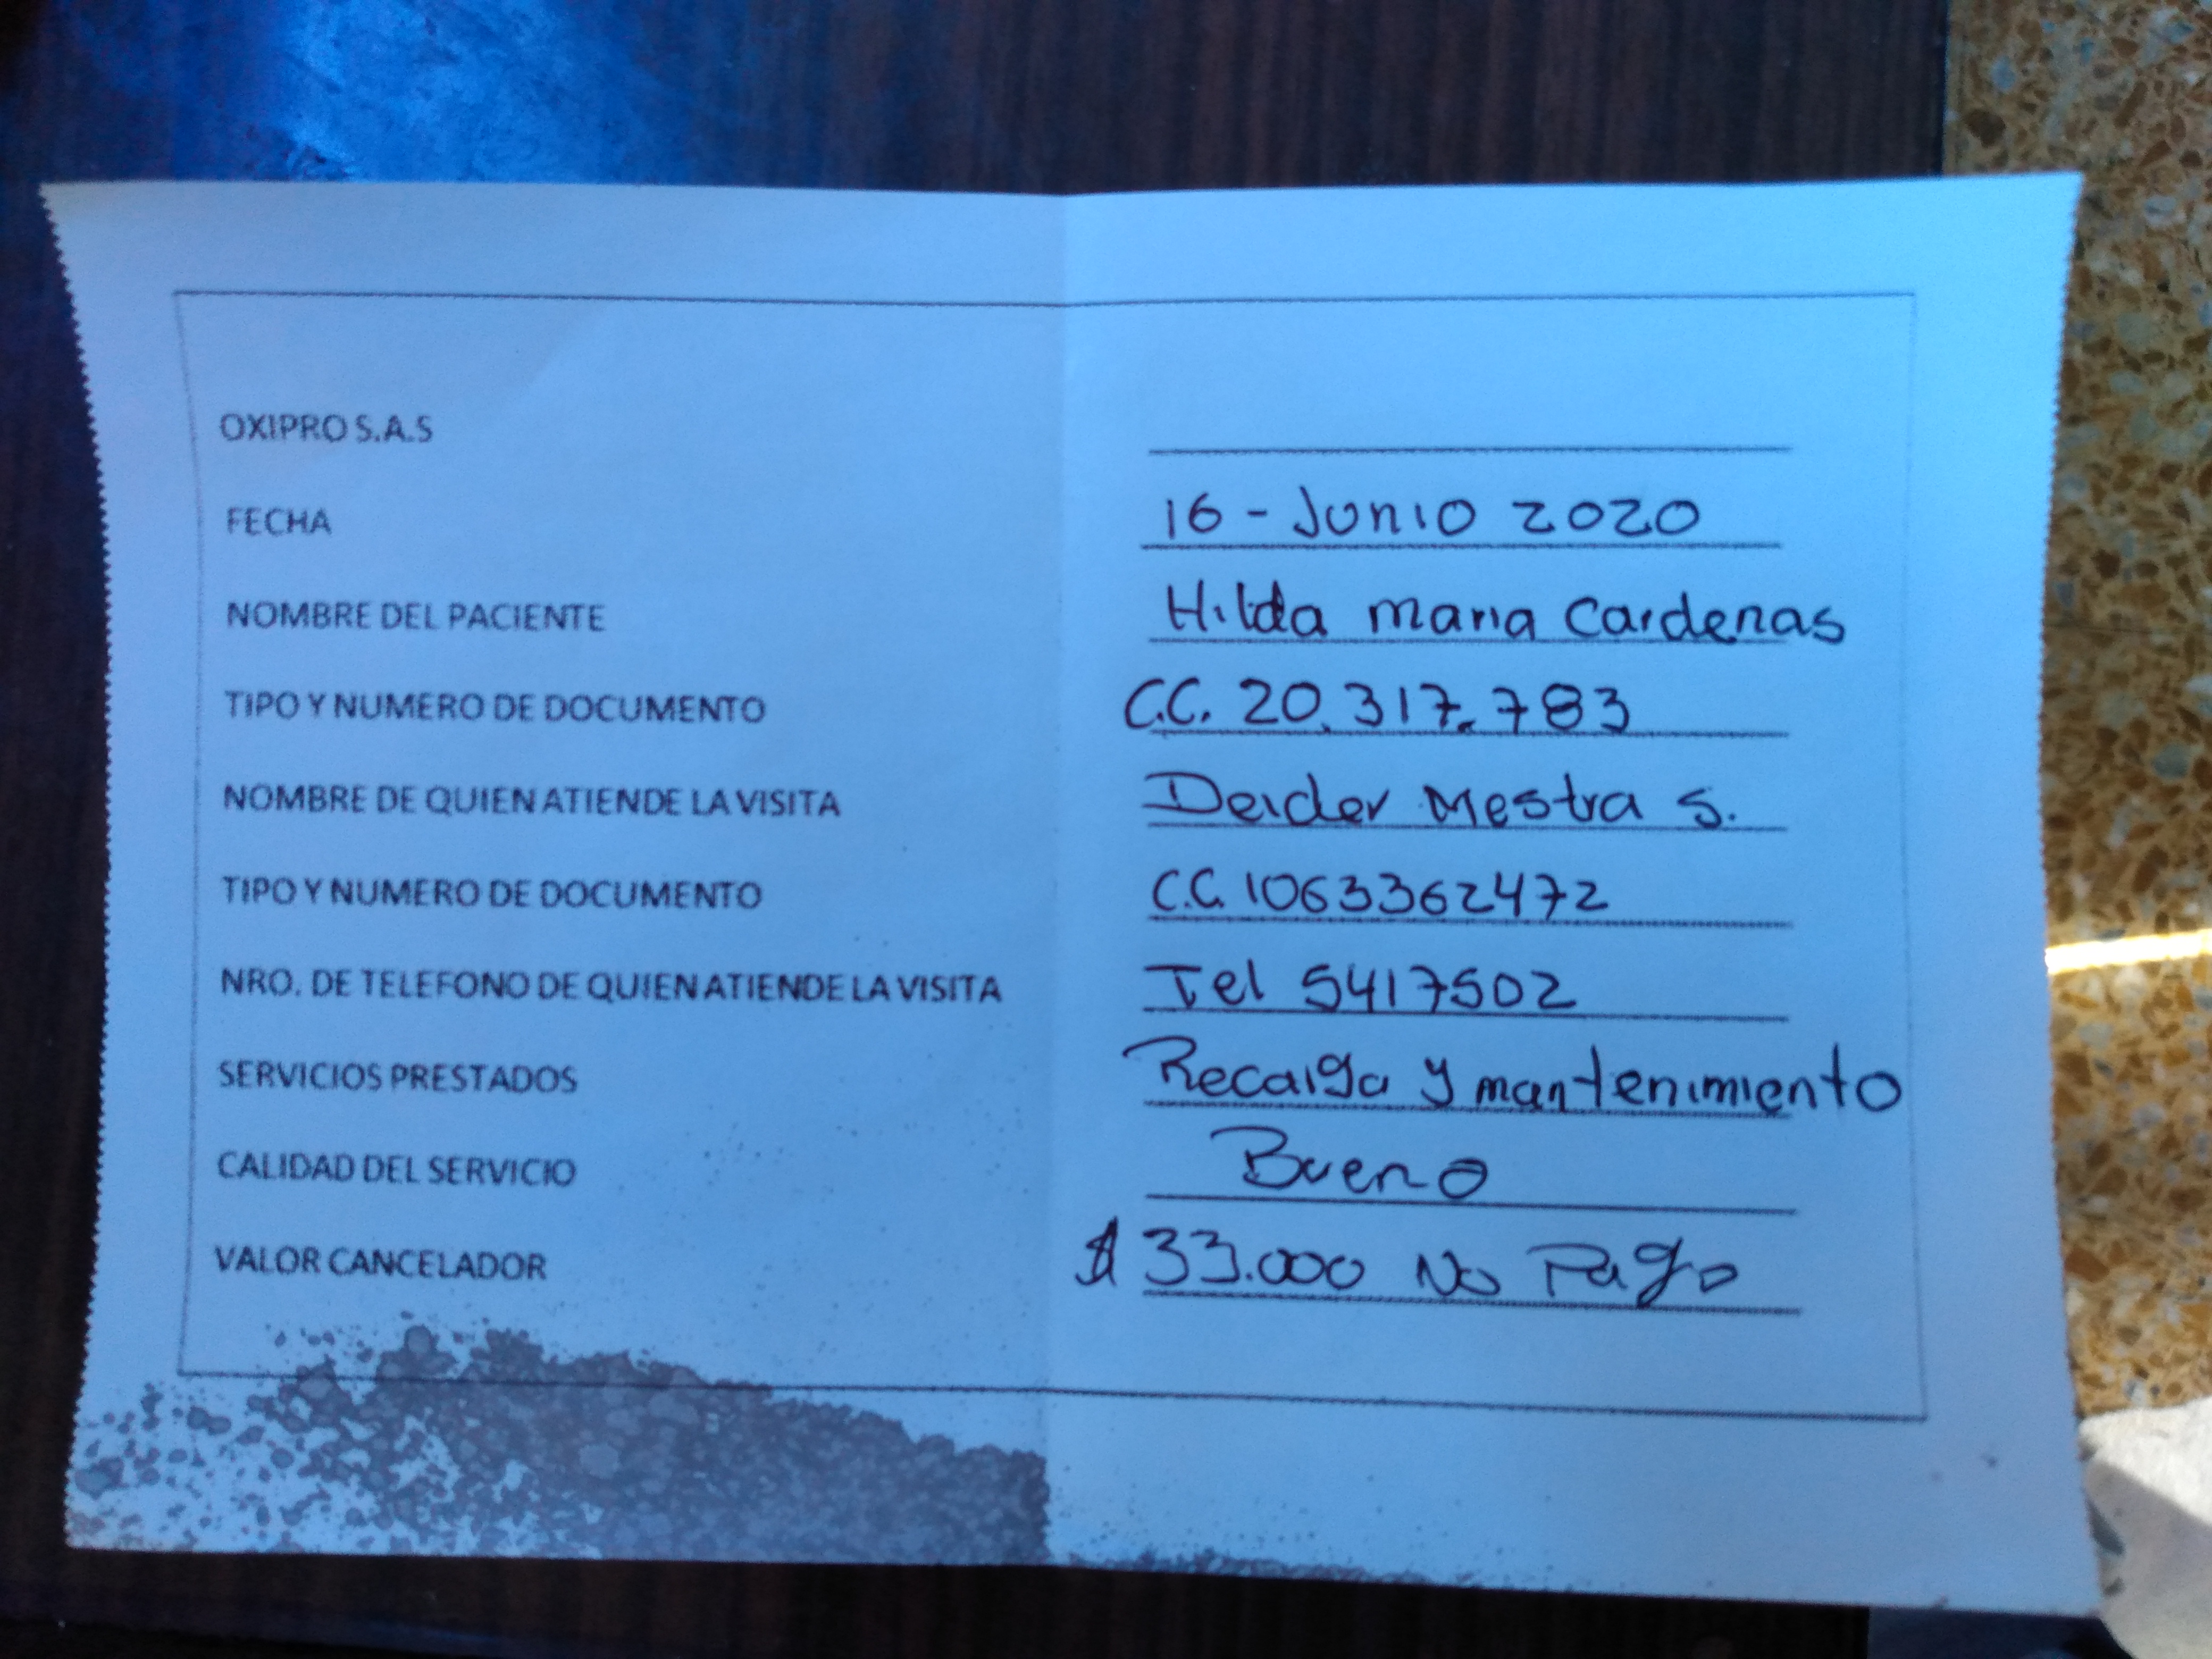 OXIPRO S.A.S
FECHA 16 - Junio 2020
NOMBRE DEL PACIENTE Hilda maria Cardenas
TIPO Y NUMERO DE DOCUMENTO C.C. 20.317.783
NOMBRE DE QUIEN ATIENDE LA VISITA Deider Mestra S.
TIPO Y NUMERO DE DOCUMENTO C.C. 1063362472
NRO. DE TELEFONO DE QUIEN ATIENDE LA VISITA Tel 5417502
SERVICIOS PRESTADOS Recarga y mantenimiento
CALIDAD DEL SERVICIO Bueno
VALOR CANCELADOR $ 33.000 No Pago